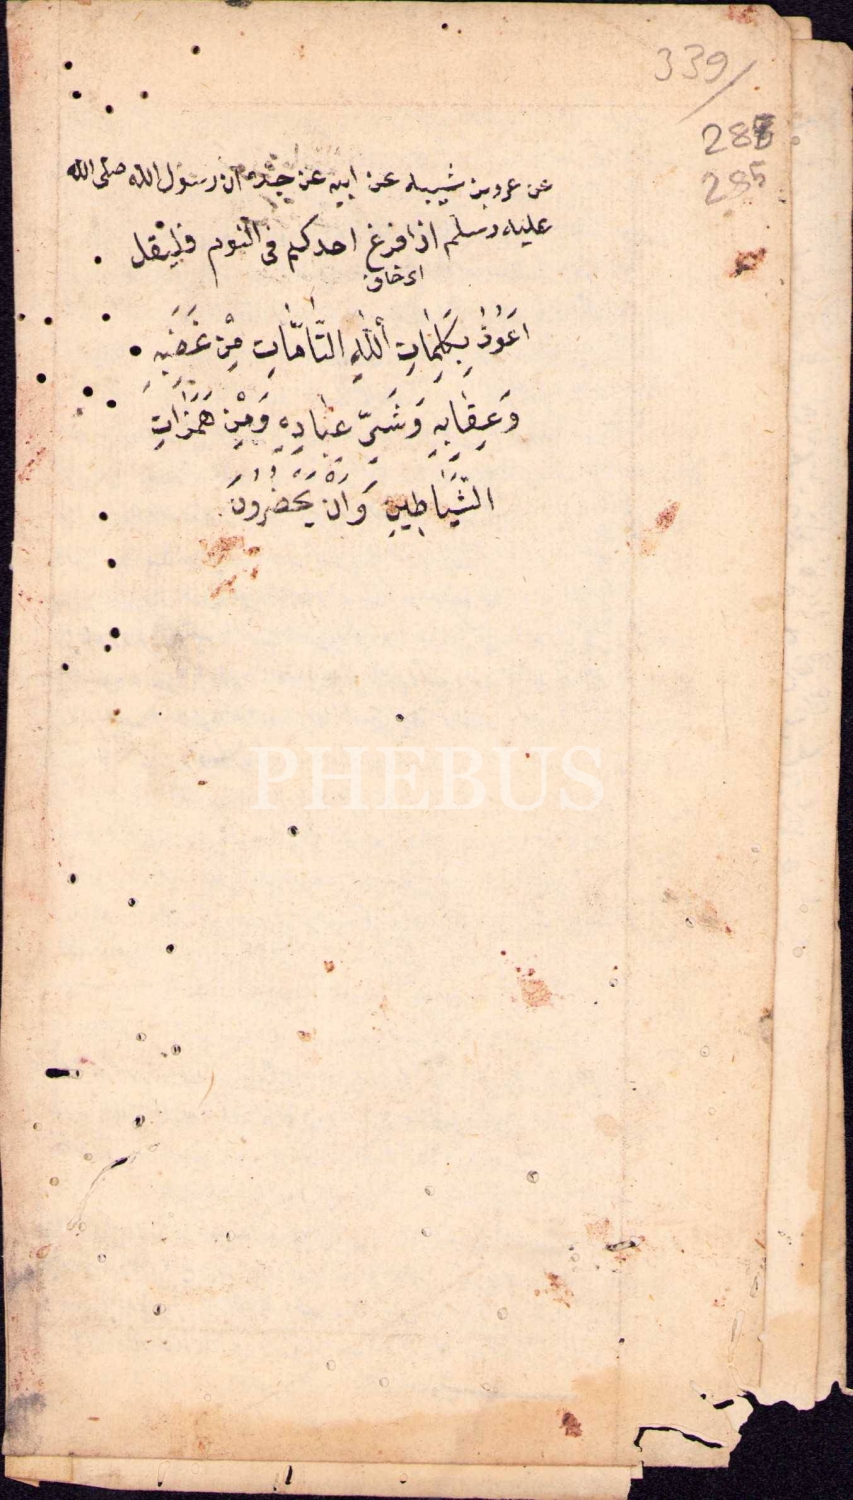 339/
285
285
عن عمرو بن شيبه عن ابيه عن جده ان رسول الله صلى الله
عليه وسلم اذا فزع احدكم فى النوم فليقل
اى خاف
اَعُوذُ بِكَلِمَاتِ اللّٰهِ التَّامَّاتِ مِنْ غَضَبِهِ
وَعِقَابِهِ وَشَرِّ عِبَادِهِ وَمِنْ هَمَزَاتِ
الشَّيَاطِينِ وَاَنْ يَحْضُرُونَ
PHEBUS